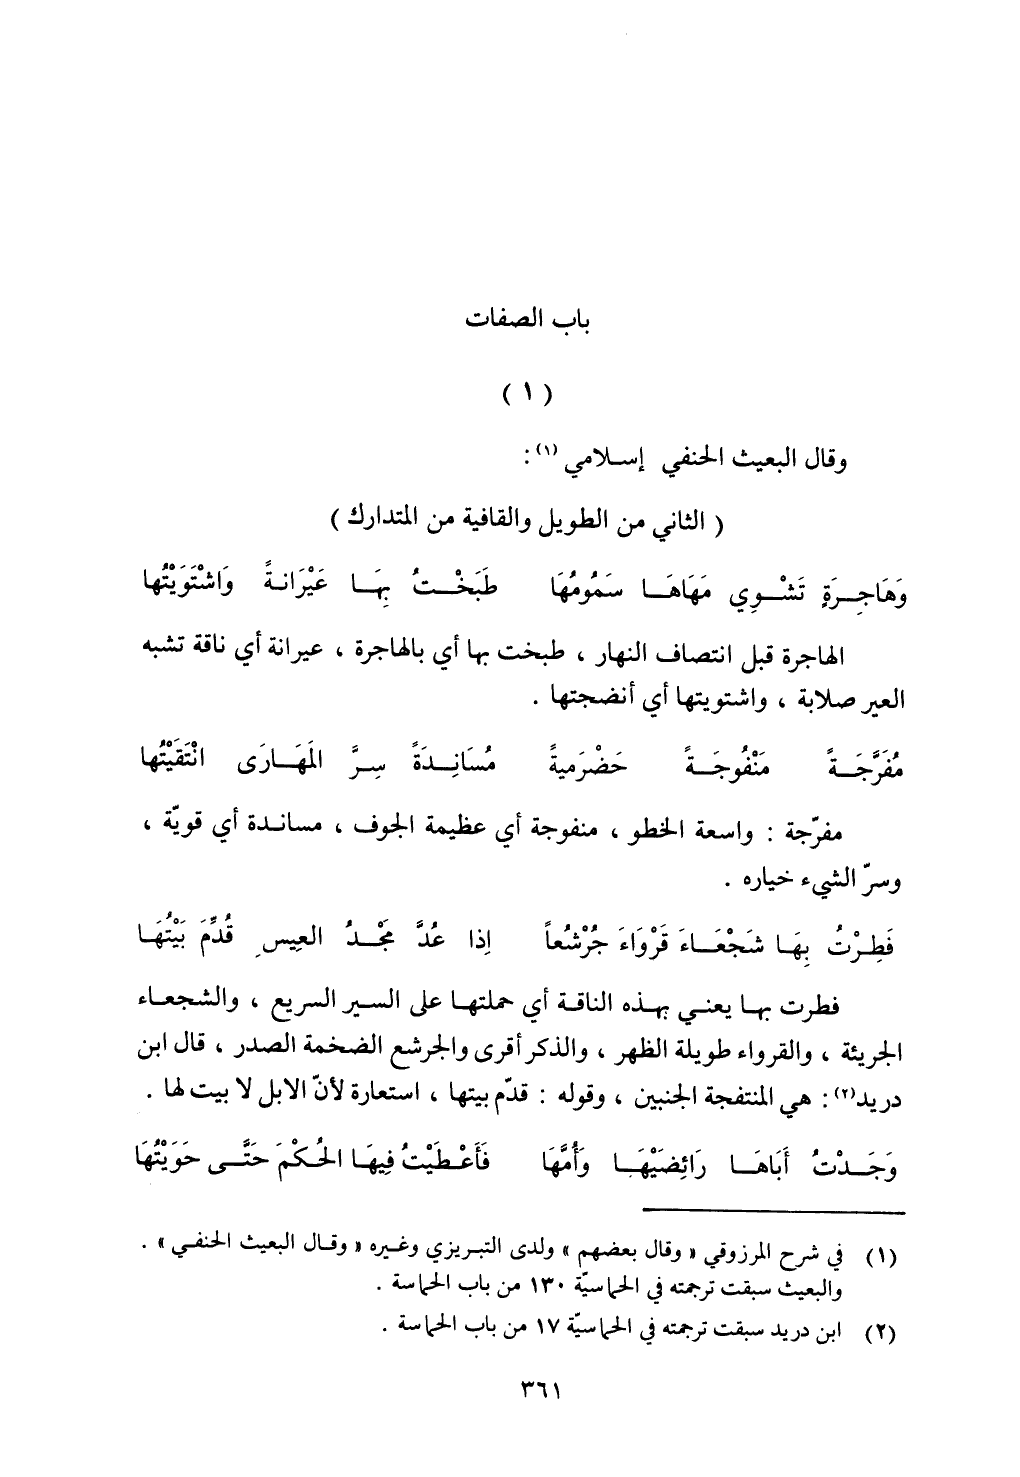 باب الصفات
( ١ )
وقال البعيث الحنفي إسلامي (١) :
( الثاني من الطويل والقافية من المتدارك )
وَهَاجِرَةٍ تَشْوِي مَهَاهَا سَمُومُهَا طَبَخْتُ بِهَا عَيْرَانَةً وَاشْتَوَيْتُها
الهاجرة قبل انتصاف النهار ، طبخت بها أي بالهاجرة ، عيرانة أي ناقة تشبه
العير صلابة ، واشتويتها أي أنضجتها .
مُفَرَّجَةً مَنْفُوجَةً حَضْرَميةً مُسَانِدَةً سِرَّ المَهَارَى انْتَقَيْتُها
مفرّجة : واسعة الخطو ، منفوجة أي عظيمة الجوف ، مساندة أي قويّة ،
وسرّ الشيء خياره .
فَطِرْتُ بِهَا شَجْعَاءَ قَرْوَاءَ جُرْشُعاً إِذا عُدَّ مَجْدُ العِيسِ قُدِّمَ بَيْتُهَا
فطرت بها يعني بهذه الناقة أي حملتها على السير السريع ، والشجعاء
الجريئة ، والقرواء طويلة الظهر ، والذكر أقرى والجرشع الضخمة الصدر ، قال ابن
دريد(٢) : هي المنتفجة الجنبين ، وقوله : قدّم بيتها ، استعارة لأنّ الابل لا بيت لها .
وَجَدْتُ أَبَاهَا رَائِضَيْهَا وَأُمَّهَا فَأَعْطَيْتُ فِيهَا الحُكْمَ حَتَّى حَوَيْتُهَا
(١) في شرح المرزوقي « وقال بعضهم » ولدى التبريزي وغيره « وقال البعيث الحنفي » .
والبعيث سبقت ترجمته في الحماسيّة ١٣٠ من باب الحماسة .
(٢) ابن دريد سبقت ترجمته في الحماسيّة ١٧ من باب الحماسة .
٣٦١